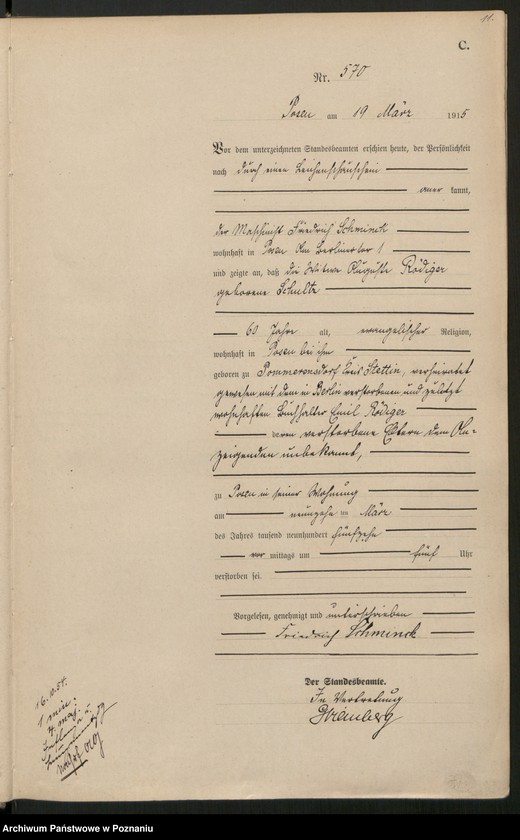 11.
C.
Nr. 570
Posen am 19 März 1915
Vor dem unterzeichneten Standesbeamten erschien heute, der Persönlichkeit
nach durch einen Leichenschauschein
aner kannt,
der Maschinist Friedrich Schminck
wohnhaft in Posen Am Berliner tor 1
und zeigte an, daß die Witwe Auguste Rödiger
geborene Schultz
60 Jahre alt, evangelischer Religion,
wohnhaft in Posen bei ihm
geboren zu Pommerensdorf Kreis Stettin, verheiratet
gewesen mit dem in Berlin verstorbenen und zuletzt
wohnhaften Buchhalter Emil Rödiger
deren verstorbene Eltern dem An-
zeigenden unbekannt,
zu Posen in seiner Wohnung
am neunzehn ten März
des Jahres tausend neunhundert fünfzehn
vor mittags um fünf Uhr
verstorben sei.
Vorgelesen, genehmigt und unterschrieben
Friedrich Schminck
Der Standesbeamte.
In Vertretung
Archiwum Państwowe w Poznaniu